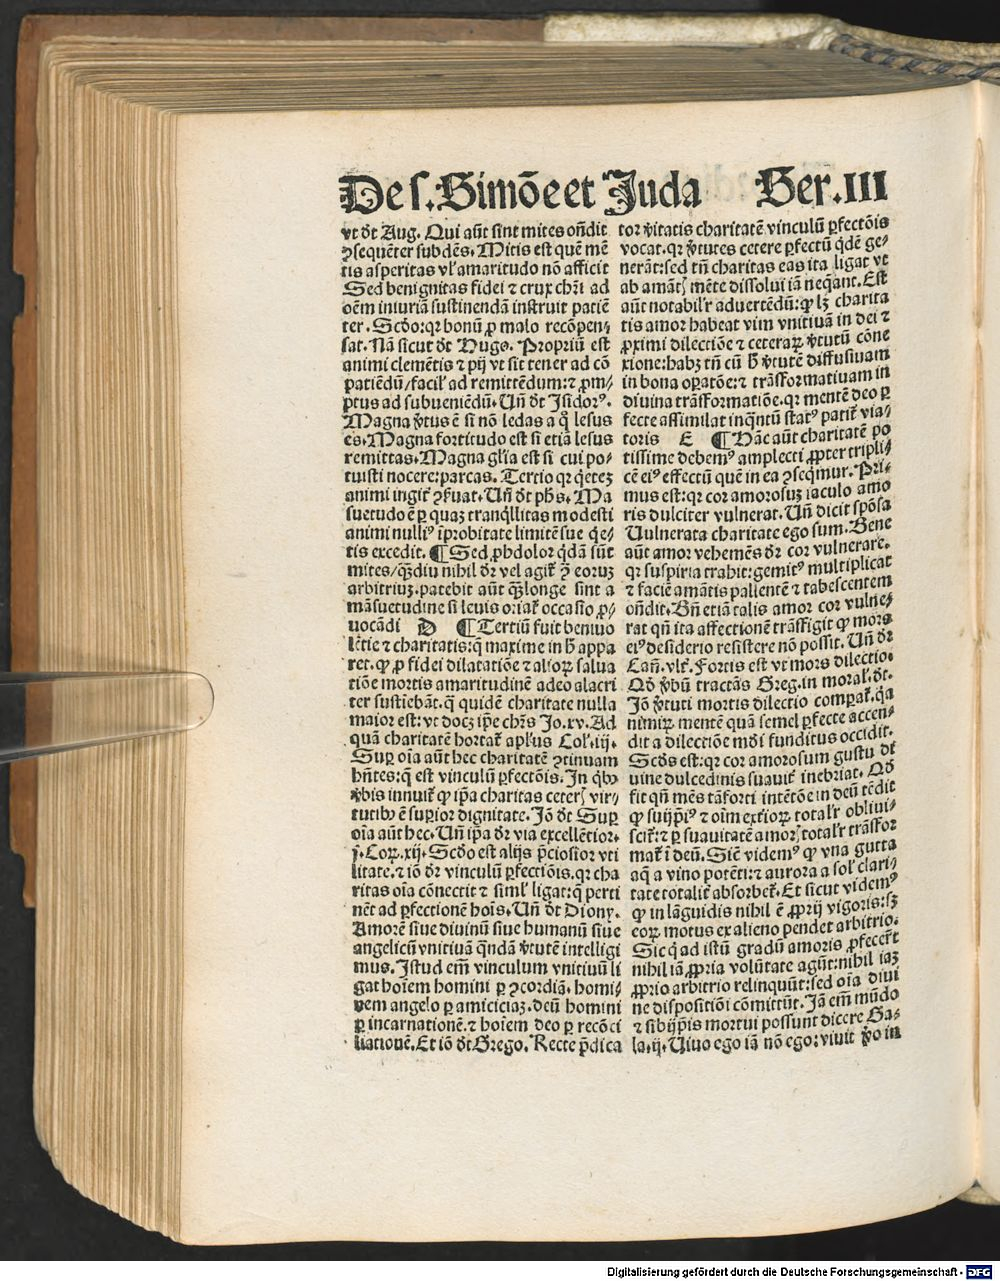 De s. Simōe et Juda Ser. III
vt dt Aug. Qui aūt sint mites ondit
ꝯsequēter subdēs. Mitis est quē mē
tis asperitas vl' amaritudo nō afficit
Sed benignitas fidei ⁊ crux chri ad
oēm iniuriā sustinendā instruit patiē
ter. Scdo: qr bonū ꝓ malo recōpen⸗
sat. Nā sicut dt Hugo. Propriū est
animi clemētis ⁊ pij vt sit tener ad cō
patiēdū/facil' ad remittēdum: ⁊ ꝓm⸗
ptus ad subueniēdū. Uñ dt Isidorꝰ.
Magna v̓tus ē si nō ledas a quo lesus
es. Magna fortitudo est si etiā lesus
remittas. Magna glia est si cui po⸗
tuisti nocere: parcas. Tertio qr q̇etez
animi ingit̄ ꝯẜuat. Uñ dt phs. Ma
suetudo ē ꝑ quaz tranq̇llitas modesti
animi nulliꝰ īprobitate limitē sue q̇e⸗
tis excedit. ¶ Sed ꝓhdolor q̇dā sūt
mites/q̄diu nihil dr vel agit̄ ꝯ̄ eoruz
arbitriuz. patebit aūt q̄longe sint a
māsuetudine si leuis oriat̄ occasio ꝓ⸗
uocādi D ¶ Tertiū fuit beniuo
lētie ⁊ charitatis: q̄ maxime in h̄ appa
ret. ꝙ ꝓ fidei dilatatiōe ⁊ alioꝝ salua
tiōe mortis amaritudinē adeo alacri
ter sustiebāt. q̄ quidē charitate nulla
maior est: vt docz ip̄e chr̄s Jo. xv. Ad
quā charitatē hortat̄ apl'us Col'. iij.
Suꝑ oīa aūt hec charitatē ꝯtinuam
hñtes: q̄ est vinculū ꝑfectōis. In q̇bꝫ
v̓bis innuit̄ ꝙ ip̄a charitas ceterꝭ vir⸗
tutibꝫ ē suꝑior dignitate. Jō dt Suꝑ
oīa aūt hec. Uñ ip̄a dr via excellētior.
j. Coꝝ. xij. Scdo est alijs p̄ciosior vti
litate. ⁊ iō dr vinculū ꝑfectiōis. qr cha
ritas oīa cōnectit ⁊ simł ligat: q̄ perti
nēt ad ꝑfectionē hoīs. Uñ dt Diony.
Amorē siue diuinū siue humanū siue
angelicū vnitiuā quandā v̓tutē intelligi
mus. Istud em̄ vinculum vnitiuū li
gat hoīem homini ꝑ ꝯcordiā. homi⸗
nem angelo ꝑ amiciciaz. deū homini
ꝑ incarnationē. ⁊ hoīem deo ꝑ recōci
liationē. Et iō dt Grego. Recte p̄dica
tor v̓itatis charitatē vinculū ꝑfectōis
vocat. qr v̓tutes cetere ꝑfectū q̇dē ge⸗
nerāt: sed tñ charitas eas ita ligat vt
ab amātꝭ mēte dissolui iā neq̄ant. Est
aūt notabil'r aduertēdū: ꝙ lꝫ charita
tis amor habeat vim vnitiuā in dei ⁊
ꝓximi dilectiōe ⁊ ceteraꝝ v̓tutū cōne
xione: habꝫ tñ cū h̄ v̓tutē diffusiuam
in bona oꝑatōe: ⁊ trāsformatiuam in
diuina trāsformatiōe. qr mentē deo ꝑ
fecte assimilat inq̄ntū statꝰ patit̄ via⸗
toris E ¶ Hāc aūt charitatē po
tissime debemꝰ amplecti ꝓpter tripli⸗
cē eiꝰ effectū quē in ea ꝯseq̇mur. Pri⸗
mus est: qr cor amorosuz iaculo amo
ris dulciter vulnerat. Uñ dicit spōsa
Uulnerata charitate ego sum. Bene
aūt amor vehemēs dr cor vulnerare.
qr suspiria trahit: gemitꝰ multiplicat
⁊ faciē amātis pallentē ⁊ tabescentem
ondit. Bñ etiā talis amor cor vulne⸗
rat qñ ita affectionē trāsfigit ꝙ mora
eiꝰ desiderio resistere nō possit. Uñ dr
Cañ. vlt̄. Fortis est vt mors dilectio.
Qd v̓bū tractās Greg. in moral'. dt.
Jō v̓tuti mortis dilectio comparat̄. q̇a
nimiꝝ mentē quā semel ꝑfecte accen⸗
dit a dilectiōe mūdi funditus occidit.
Scds est: qr cor amorosum gustu di
uine dulcedinis suauit̄ inebriat. Qd
fit qñ mēs tā forti intētōe in deū tēdit
ꝙ suijp̄iꝰ ⁊ oīm extioꝝ total'r obliui⸗
scit̄: ⁊ ꝑ suauitatē amorꝭ total'r trāsfor
mat̄ ī deū. Sic videmꝰ ꝙ vna gutta
aq̄ a vino potēti: ⁊ aurora a sol' clari⸗
tate totalit̄ absorbet̄. Et sicut videmꝰ
ꝙ in lāguidis nihil ē ꝓprij vigoris: sꝫ
eoꝝ motus ex alieno pendet arbitrio.
Sic q̇ ad istū gradū amoris ꝓfecert̄
nihil iā ꝓpria volūtate agūt: nihil iaꝫ
ꝓprio arbitrio relinquūt: sed oīa diui
ne dispositiōi cōmittūt. Jā em̄ mūdo
⁊ sibijp̄is mortui possunt dicere Ga⸗
la. ij. Uiuo ego iā nō ego: viuit v̓o in
Digitalisierung gefördert durch die Deutsche Forschungsgemeinschaft - DFG